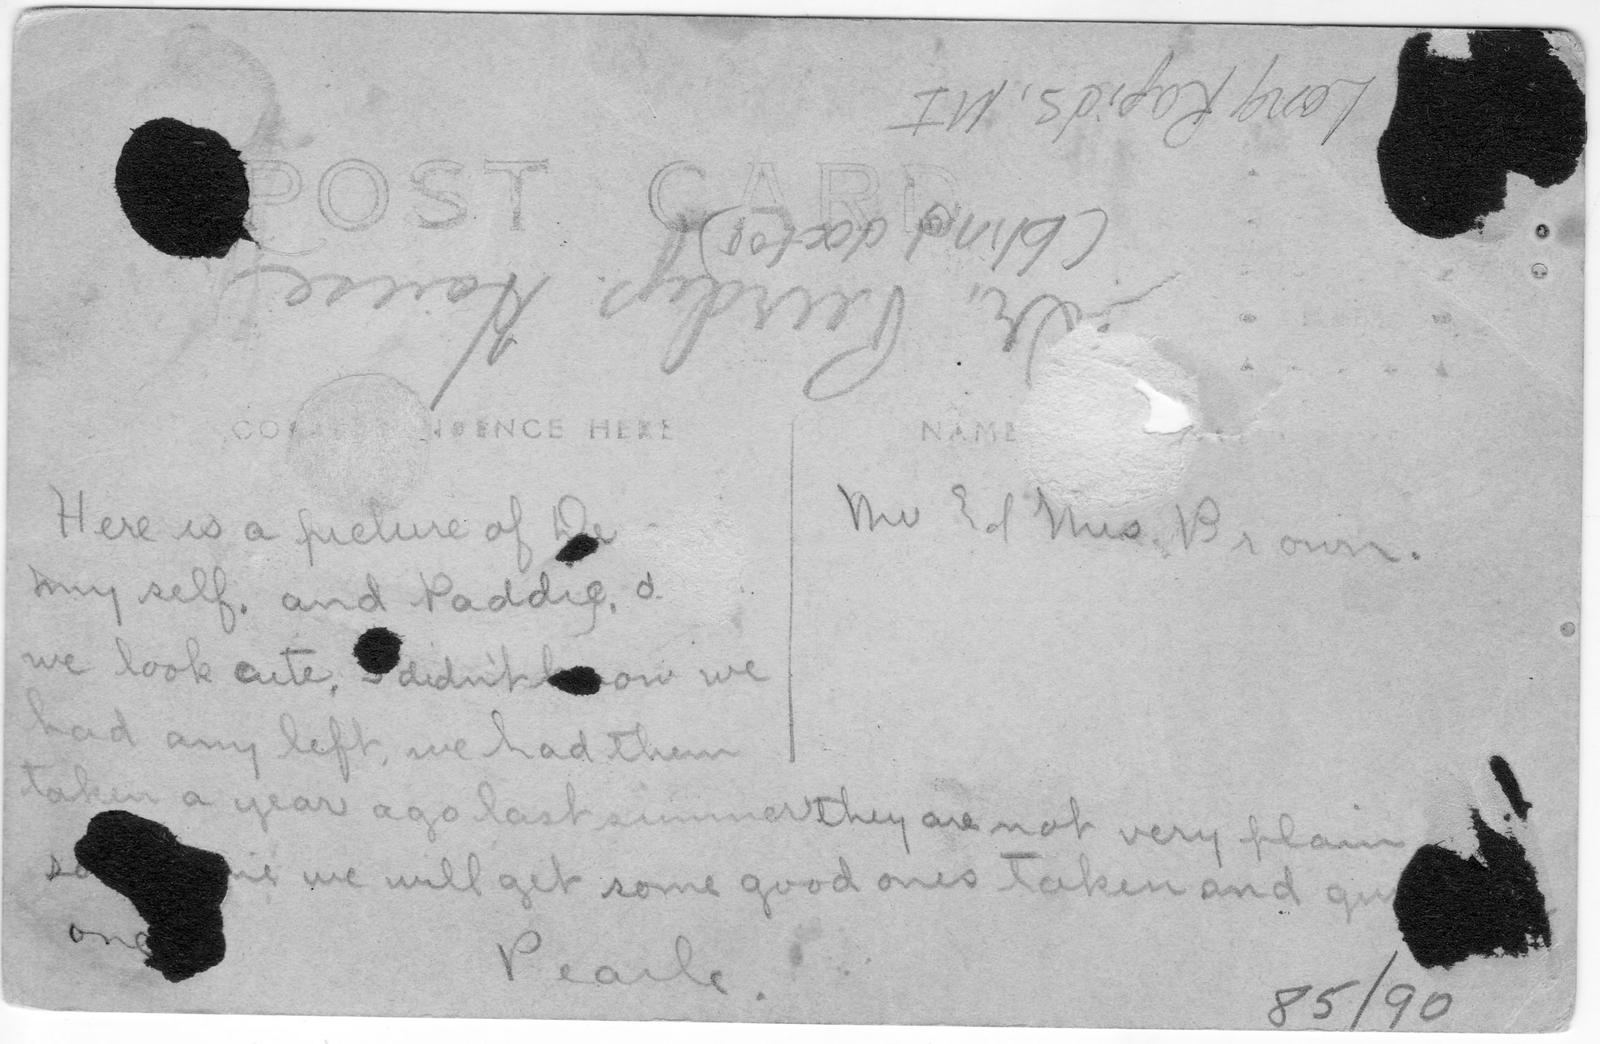 Long Rapids, MI
POST CARD
(blind doctor)
Dr. Purdys House
CORRESPONDENCE HERE
NAME
Here is a picture of De
my self. and Paddie, d
we look cute, I didn't know we
had any left, we had them
taken a year ago last summer they are not very plain
we will get some good ones taken and
one
Pearle.
Mr Ed Mrs. Brown.
85/90